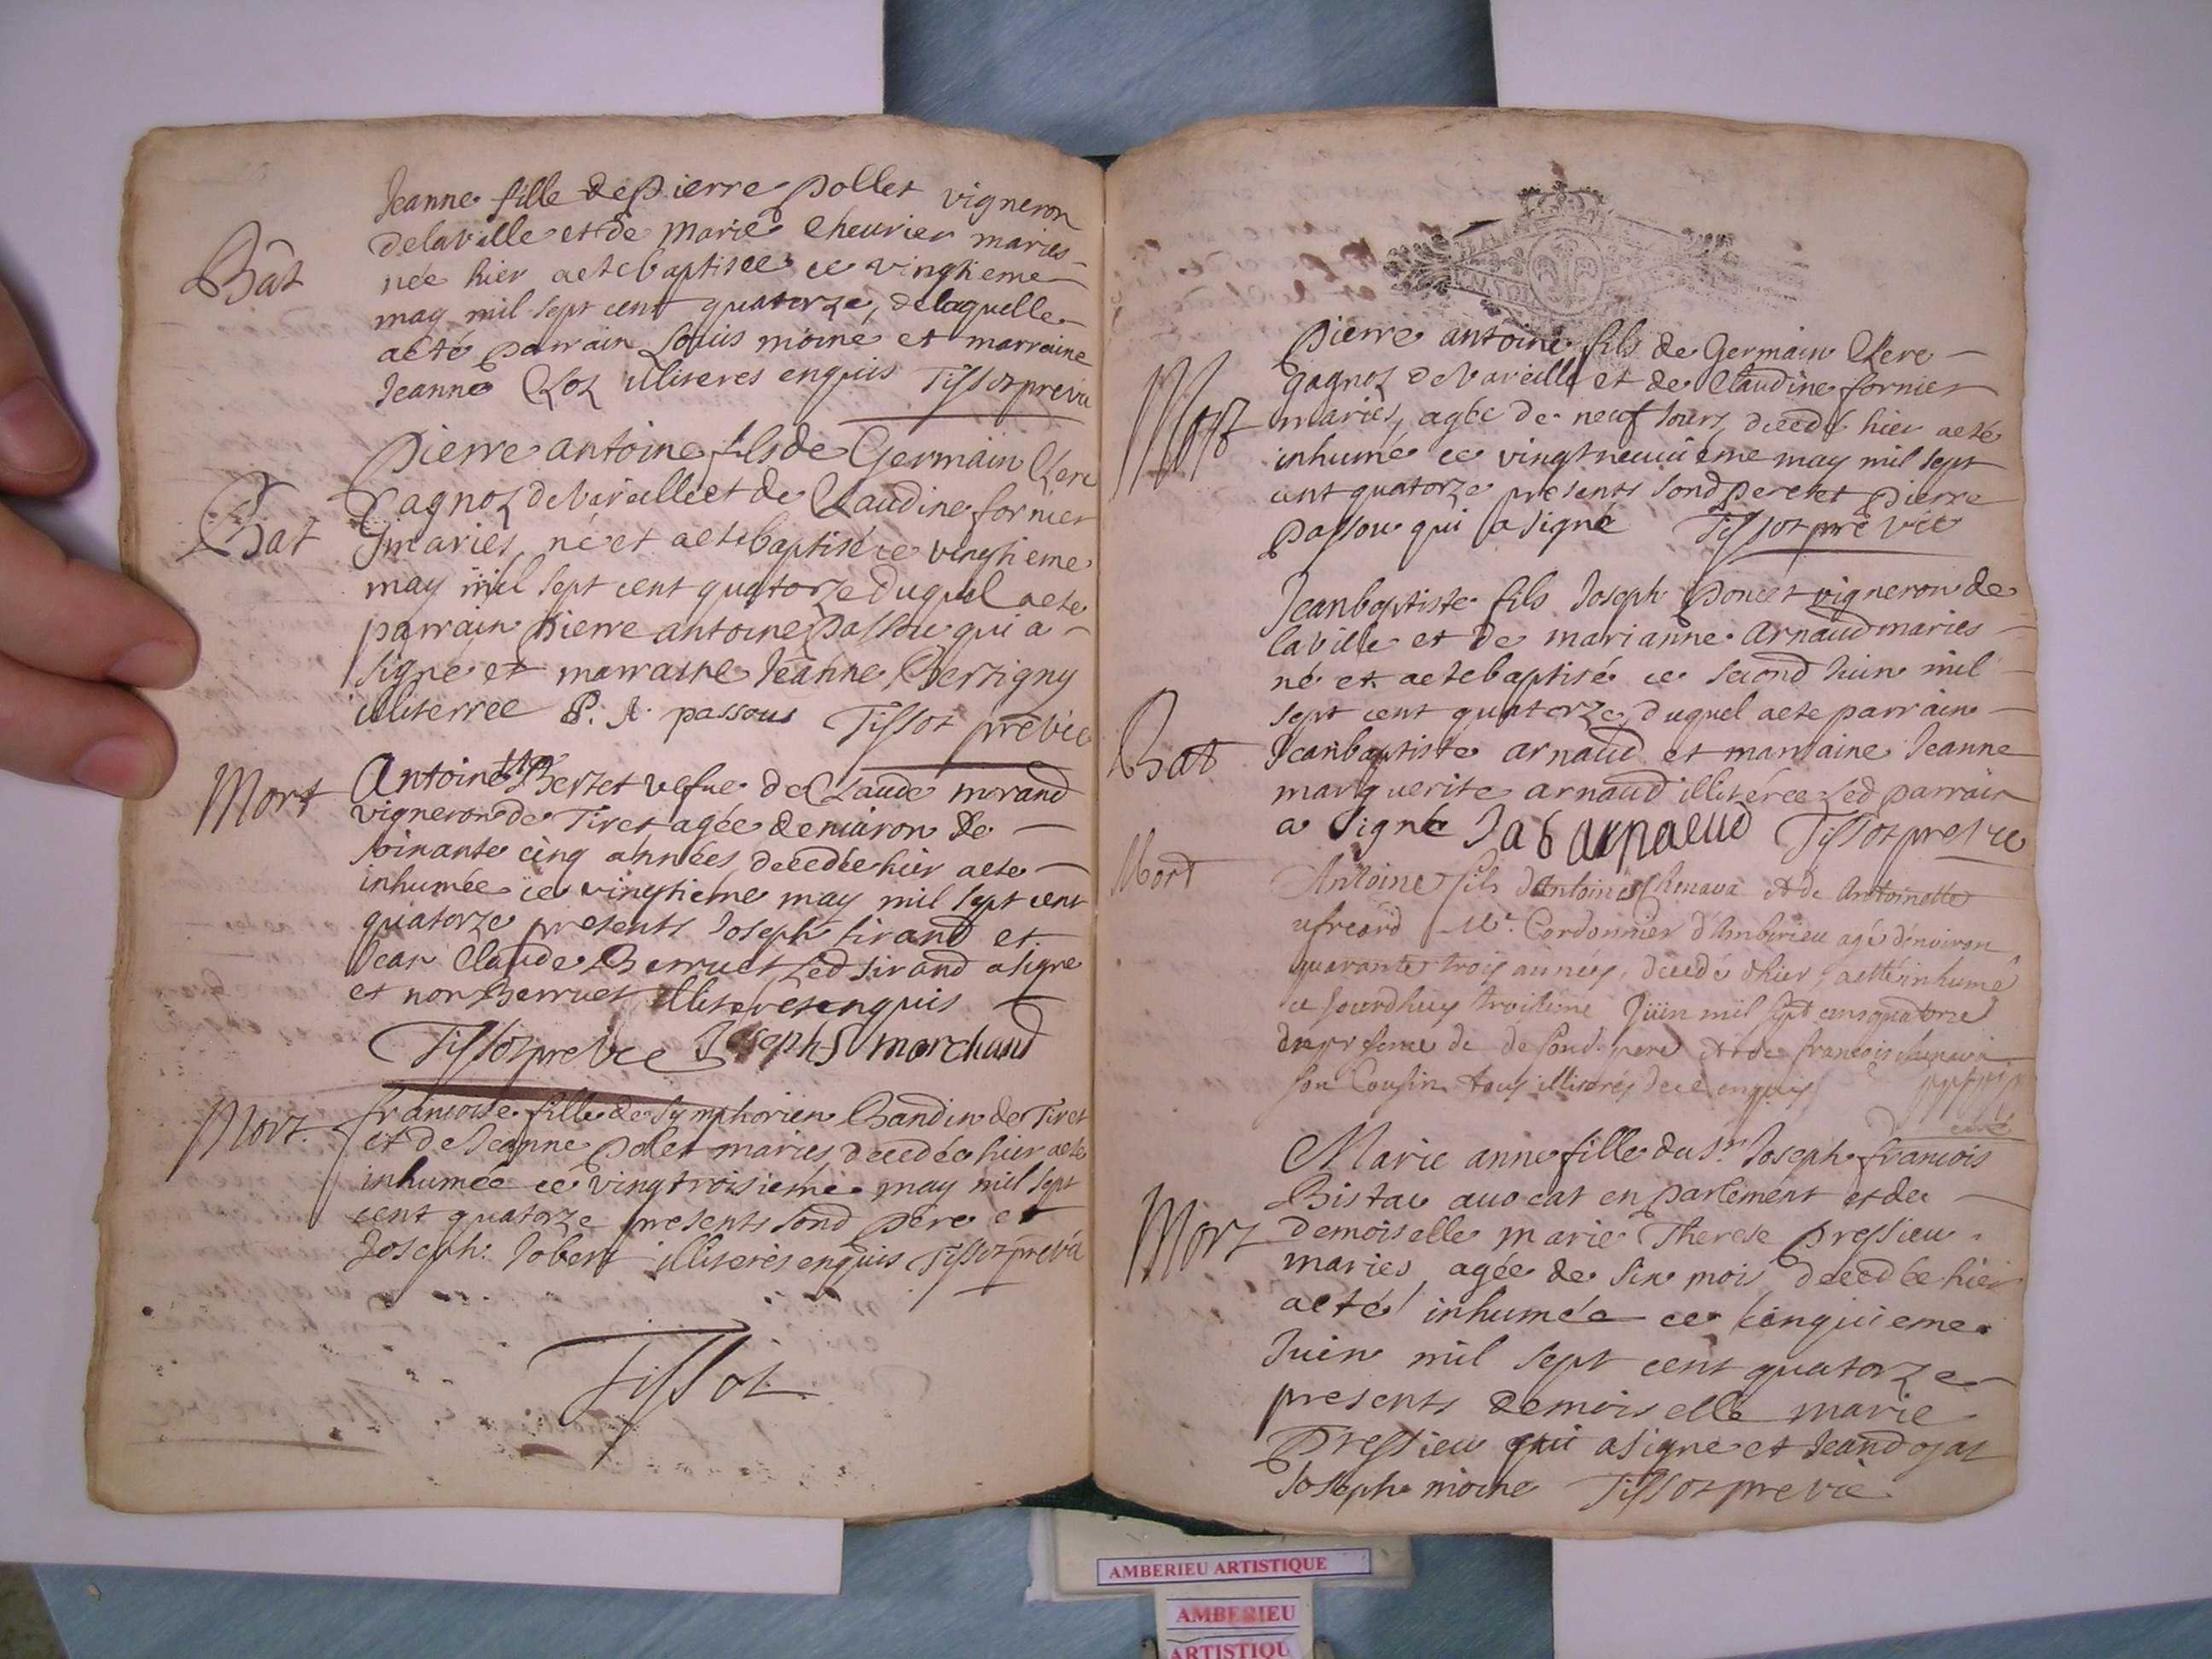 Jeanne fille de Pierre pollet vigneron
delaville et de marie cheurier maries
Bât
née hier aete baptisée ce vingtieme
may mil sept cent quatorze, delaquelle
aeté parrain Louis moine et marraine
Jeanne illiteres enquis Tissot previc
Pierre antoine fils de Germain Clerc
Gagnoz de Vareille et de Claudine fornier
Bat
maries, né et aete baptisé ce vingtieme
may mil sept cent quatorze duquel aete
parrain Pierre antoine Passou qui a
signé et marraine Jeanne Bertigny
illiterree P. A. passous Tissot previc
Mort
Antoinette Bertet vefue de Claude morand
vigneron de Tiret agée denuiron de
soixante cinq années decedée hier aete
inhumée ce vingtieme may mil sept cent
quatorze presents Joseph sirand et
Jean Claude Berruet led sirand a signe
et non Berruet illiteres enquis
Tissot previc Joseph S marchand
Mort.
francoise fille de Symphorien Bandin de Tiret
et de Jeanne Pollet maries decedée hier aete
inhumée ce vingtroisieme may mil sept
cent quatorze presents sond père et
Joseph Jobert illiterés enquis Tissot previc
Tissot
Pierre antoine fils de Germain Clerc
gagnoz de Vareille et de Claudine fornier
Mort
maries, agée de neuf jours, decedé hier aeté
inhumé ce vingtneuuieme may mil sept
cent quatorze presents sond pere et Pierre
Passou qui a signé Tissot previc
Jeanbaptiste fils Joseph Poncet vigneron de
laville et de marianne Arnaud maries
né et aete baptisé ce second Juin mil
sept cent quatorze, duquel aete parrain
Bat
Jeanbaptiste arnaud et marraine Jeanne
marguerite arnaud illitérée led parrain
a signé J a b arnaud Tissot previc
Mort
Antoine fils d'Antoine Chenava et de Antoinette
Me. Cordonnier d'Amberieu agé d'enuiron
quarante trois années, decedé d'hier, aeté inhumé
ce Jourdhuy troisieme Juin mil sept cens quatorze
en presence de de sond. pere et de francois chenava
son Cousin tous illiterés de ce enquis
curé
Marie anne fille du Sr. Joseph francois
Bistac auocat en parlement et de
Mort
demoiselle marie Therese Pressieu
maries, agée de six mois, decedée hier
aeté inhumée ce cinquieme
Juin mil sept cent quatorze
presents demoiselle marie
Pressieu qui a signe et Jean
Joseph moine Tissot previc
AMBERIEU ARTISTIQUE
AMBERIEU
ARTISTIQU